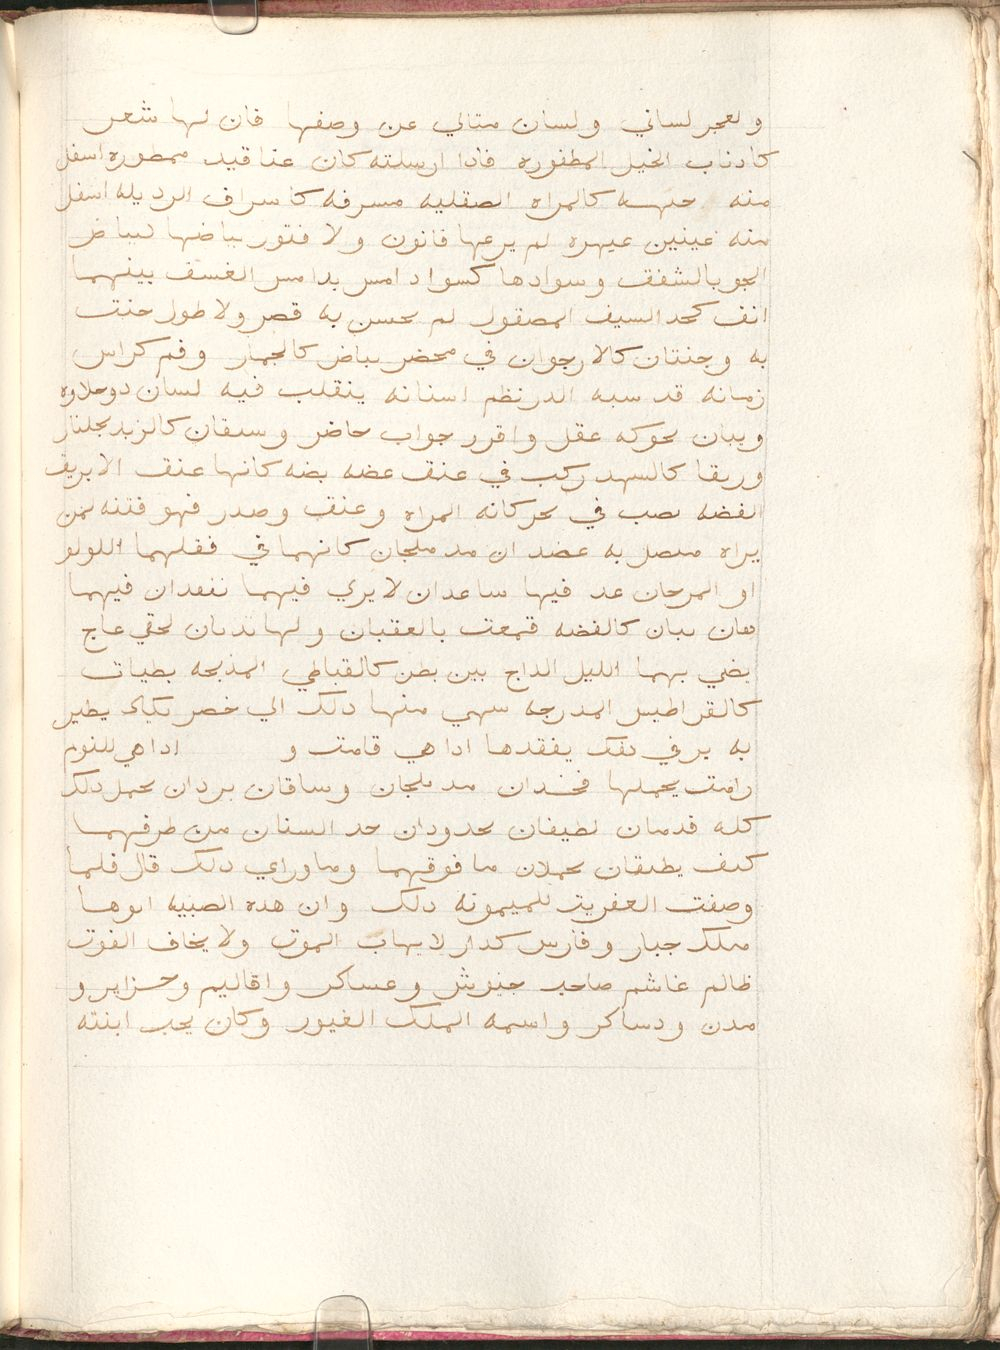 ولعجر لساني ولسان متالي عن وصفها فان لها شعر
كادناب الخيل المظفوره فادا ارسلته كان عناقيد ممصوره اسفل
منه جبهه كالمراه الصقليه مسرفه كاسراف الرديله اسفل
منه عينين عبهره لم يرعها قانون ولا فتور بياضها لبياض
الجو بالشفق وسوادها كسواد امس بدامس الغسق بينهما
انف كحد السيف المصقول لم يحسن به قصر ولا طول حنت
به وجنتان كالارجوان في محضر بياض كالجمار وفم كراس
زمانه قد سبه الدر نظم اسنانه ينقلب فيه لسان دو حلاوه
وبيان يحركه عقل واقرر جواب حاضر وسفان كالزبد بجلنار
وريقا كالسهد ركب في عنق عضه بضه كانها عنق الابريق
الفضه نصب في نحر كانه المراه وعنق وصدر فهو فتنه لمن
يراه متصل به عضدان مدملجان كانهما في فقلهما اللولو
او المرجان عد فيها ساعدان لا يري فيهما نفقدان فيهما
كفان كالفضه قمعت بالعقبان ولها نديان لحقي عاج
يضي بهما الليل الداج بين بطن كالقباطي المذبجه بطيات
كالقراطيس المدرجه سهي منها دلك الي خصر يكاد يطير
به برفي كفك يفقدها ادا هي قامت و ادا هي للنوم
رامت يحملها فخدان مدملجان وساقان بردان يحمل دلك
كله قدمان لطيفان محدودان حد السنان من طرفهما
كيف يطيقان يحملان ما فوقهما وما وراي دلك قال فلما
وصفت العفريت للميمونه دلك وان هده الصبيه ابوها
ملك جبار وفارس كدار لا يهاب الموت ولا يخاف الفوت
ظالم غاشم صاحب جيوش وعساكر واقاليم وجزاير و
مدن ودساكر واسمه الملك الغيور وكان يحب ابنته